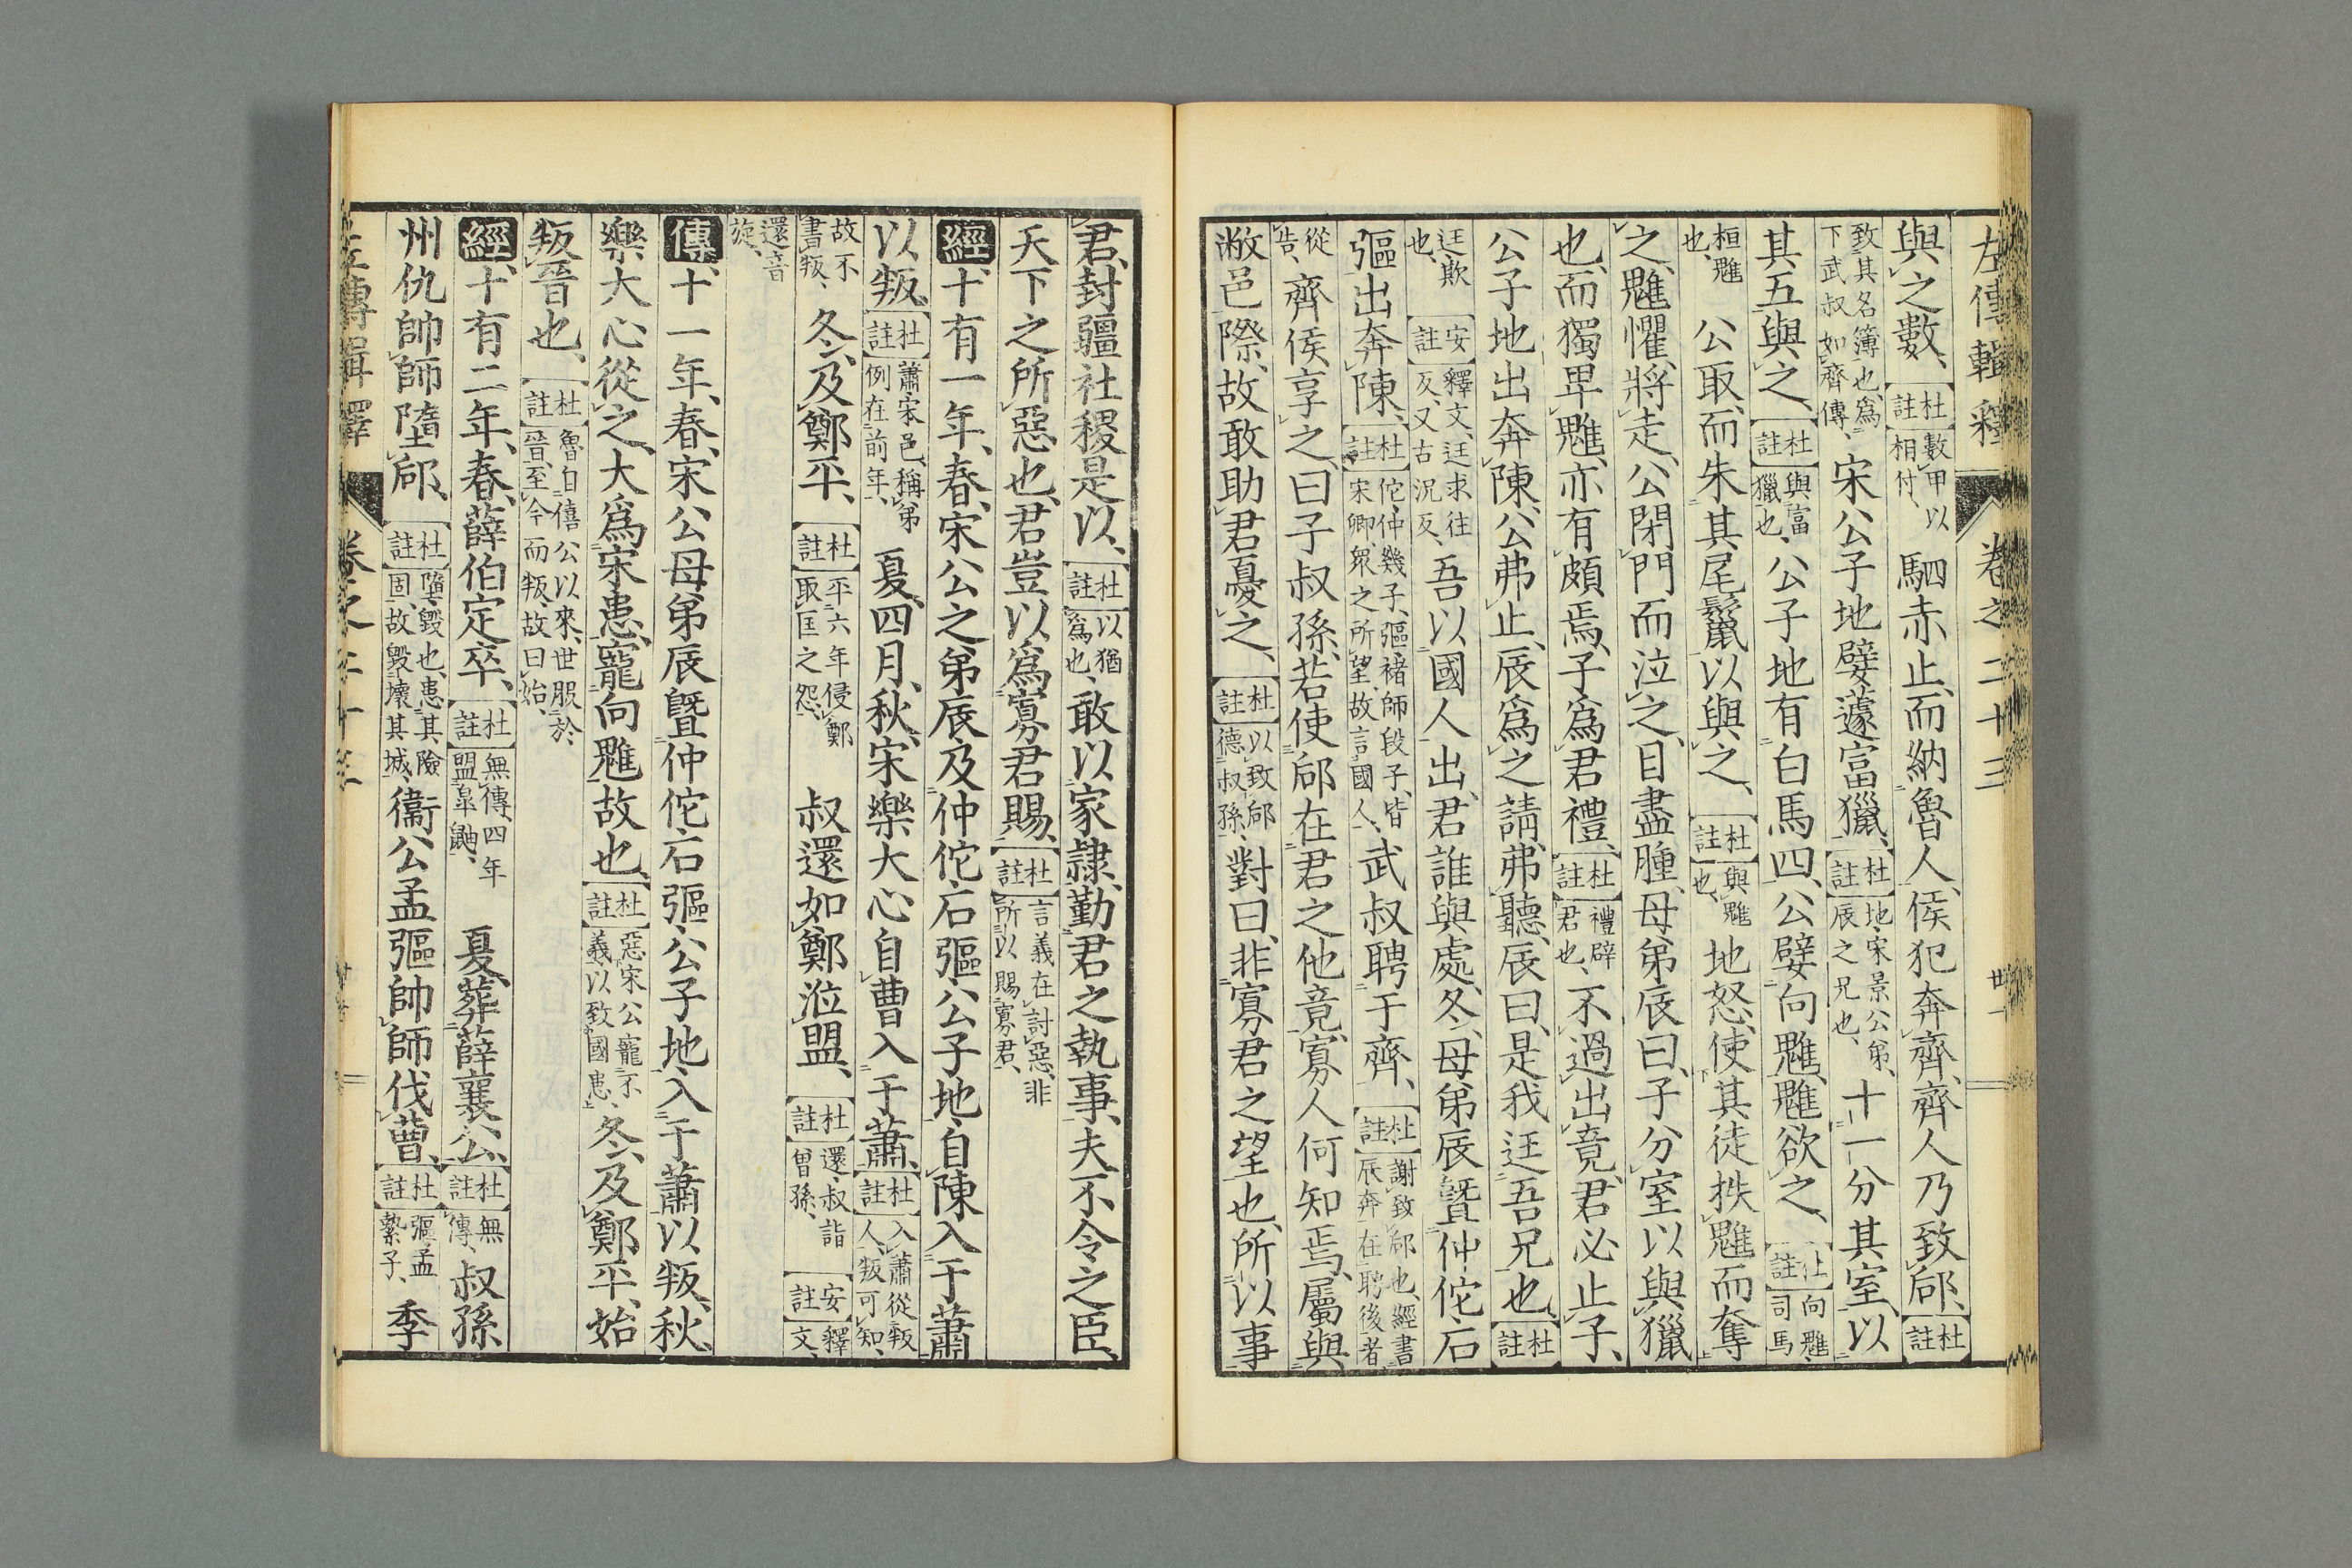 左傳輯釋 卷之二十三 廿一
與之數、杜註數甲以相付、駟赤止、而納魯人、侯犯奔齊、齊人乃致郈、杜註
致其名簿也、爲下武叔如齊傳、宋公子地嬖蘧富獵、杜註地、宋景公弟、辰之兄也、十一分其室、以
其五與之、杜註與富獵也、公子地有白馬四、公嬖向魋、魋欲之、杜註向魋、司馬
桓魋也、公取而朱其尾鬣以與之、杜註與魋也、地怒、使其徒抶魋而奪
之、魋懼、將走、公閉門而泣之、目盡腫、母弟辰曰、子分室以與獵
也、而獨卑魋、亦有頗焉、子爲君禮、杜註禮辟君也、不過出竟、君必止子、
公子地出奔陳、公弗止、辰爲之請、弗聽、辰曰、是我迋吾兄也、杜註
迋、欺也、安註釋文、迋求往反、又古況反、吾以國人出、君誰與處、冬、母弟辰曁仲佗石
彄出奔陳、杜註佗、仲幾子、彄、褚師段子、皆宋卿、衆之所望、故言國人、武叔聘于齊、杜註謝致郈也、經書辰奔在聘後者、
從告、齊侯享之曰、子叔孫、若使郈在君之他竟、寡人何知焉、屬與
敝邑際、故敢助君憂之、杜註以致郈德叔孫、對曰、非寡君之望也、所以事
君、封疆社稷是以、杜註以猶爲也、敢以家隷勤君之執事、夫不令之臣、
天下之所惡也、君豈以爲寡君賜、杜註言義在討惡、非所以賜寡君、
經、十有一年、春、宋公之弟辰、及仲佗石彄、公子地、自陳入于蕭
以叛、杜註蕭宋邑、稱弟例在前年、夏四月、秋、宋樂大心自曹入于蕭、杜註入蕭從叛人、叛可知、
故不書叛、冬、及鄭平、杜註平六年侵鄭取匡之怨、叔還如鄭涖盟、杜註還、叔詣曾孫、安註釋文、
還音旋、
傳、十一年、春、宋公母弟辰曁仲佗石彄公子地、入于蕭以叛、秋、
樂大心從之、大爲宋患、寵向魋故也、杜註惡宋公寵不義以致國患、冬、及鄭平、始
叛晉也、杜註魯自僖公以來、世服於晉、至今而叛、故曰始、
經、十有二年、春、薛伯定卒、杜註無傳、四年盟皐鼬、夏、葬薛襄公、杜註無傳、叔孫
州仇帥師墮郈、杜註墮、毀也、患其險固、故毀壞其城、衞公孟彄帥師伐曹、杜註彄、孟縶子、季
左傳輯釋 卷之二十三